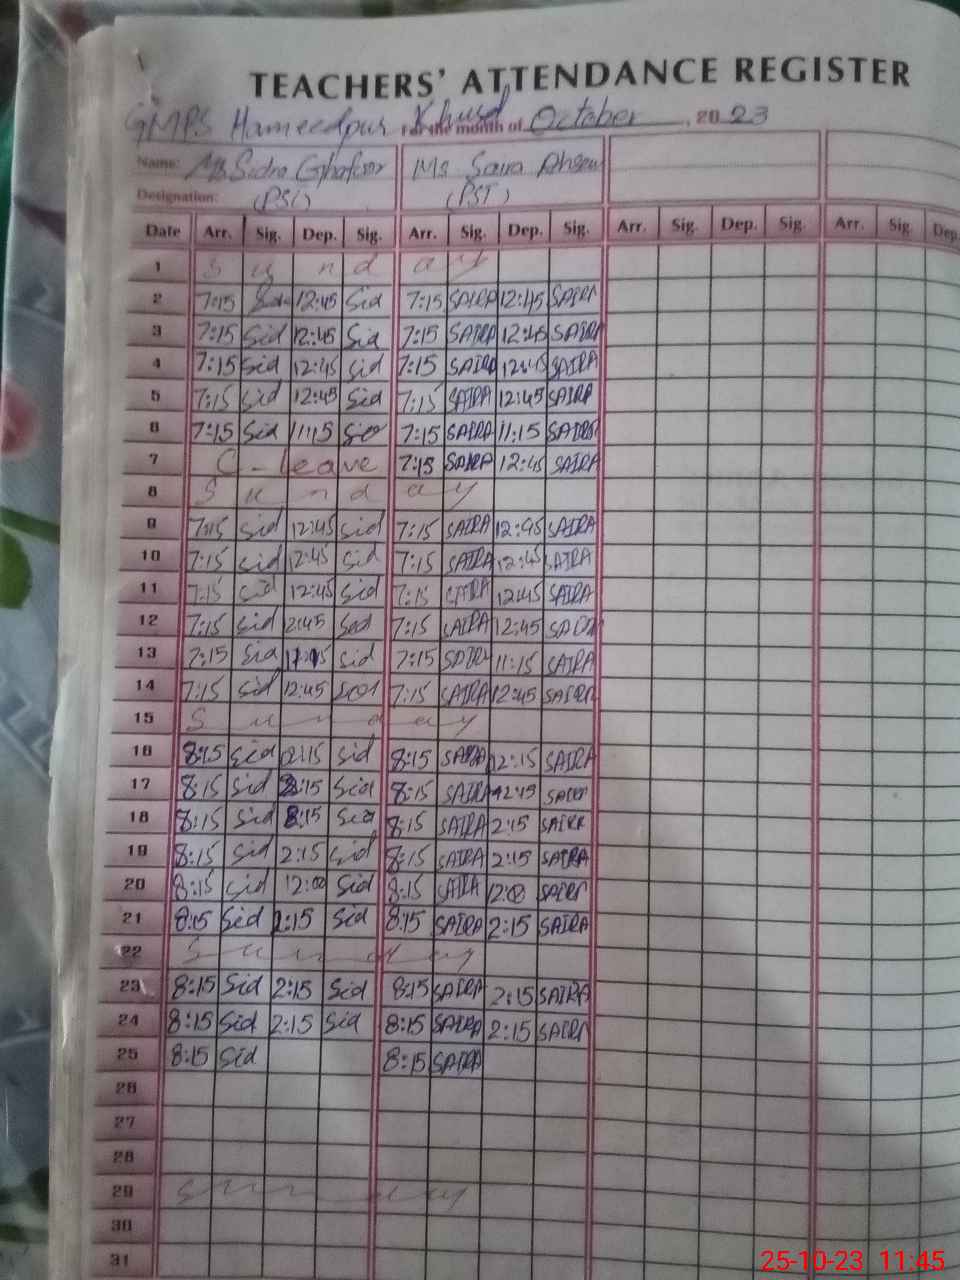 TEACHERS' ATTENDANCE REGISTER
GMPS Hameedpur Khurd For the month of October, 2023
Name: Ms Sidra Ghafoor Ms Saira
Designation: (PST) (PST)
Date Arr. Sig. Dep. Sig. Arr. Sig. Dep. Sig. Arr. Sig. Dep. Sig. Arr. Sig. Dep.
1 Sunday
2 7:15 Sid 12:45 Sid 7:15 SAIRA 12:45 SAIRA
3 7:15 Sid 12:45 Sid 7:15 SAIRA 12:45 SAIRA
4 7:15 Sid 12:45 Sid 7:15 SAIRA 12:45 SAIRA
5 7:15 Sid 12:45 Sid 7:15 SAIRA 12:45 SAIRA
6 7:15 Sid 11:15 Sid 7:15 SAIRA 11:15 SAIRA
7 C-leave 7:15 SAIRA 12:45 SAIRA
8 Sunday
9 7:15 Sid 12:45 Sid 7:15 SAIRA 12:45 SAIRA
10 7:15 Sid 12:45 Sid 7:15 SAIRA 12:45 SAIRA
11 7:15 Sid 12:45 Sid 7:15 SAIRA 12:45 SAIRA
12 7:15 Sid 2:45 Sid 7:15 SAIRA 12:45 SAIRA
13 7:15 Sid Sid 7:15 SAIRA 11:15 SAIRA
14 7:15 Sid 12:45 Sid 7:15 SAIRA 12:45 SAIRA
15 Sunday
16 8:15 Sid 12:15 Sid 8:15 SAIRA 12:15 SAIRA
17 8:15 Sid 2:15 Sid 8:15 SAIRA SAIRA
18 8:15 Sid 2:15 Sid 8:15 SAIRA 2:15 SAIRA
19 8:15 Sid 2:15 Sid 8:15 SAIRA 2:15 SAIRA
20 8:15 Sid 12:00 Sid 8:15 SAIRA 12:00 SAIRA
21 8:15 Sid 2:15 Sid 8:15 SAIRA 2:15 SAIRA
22 Sunday
23 8:15 Sid 2:15 Sid 8:15 SAIRA 2:15 SAIRA
24 8:15 Sid 2:15 Sid 8:15 SAIRA 2:15 SAIRA
25 8:15 Sid 8:15 SAIRA
26
27
28
29 Sunday
30
31
25-10-23 11:45